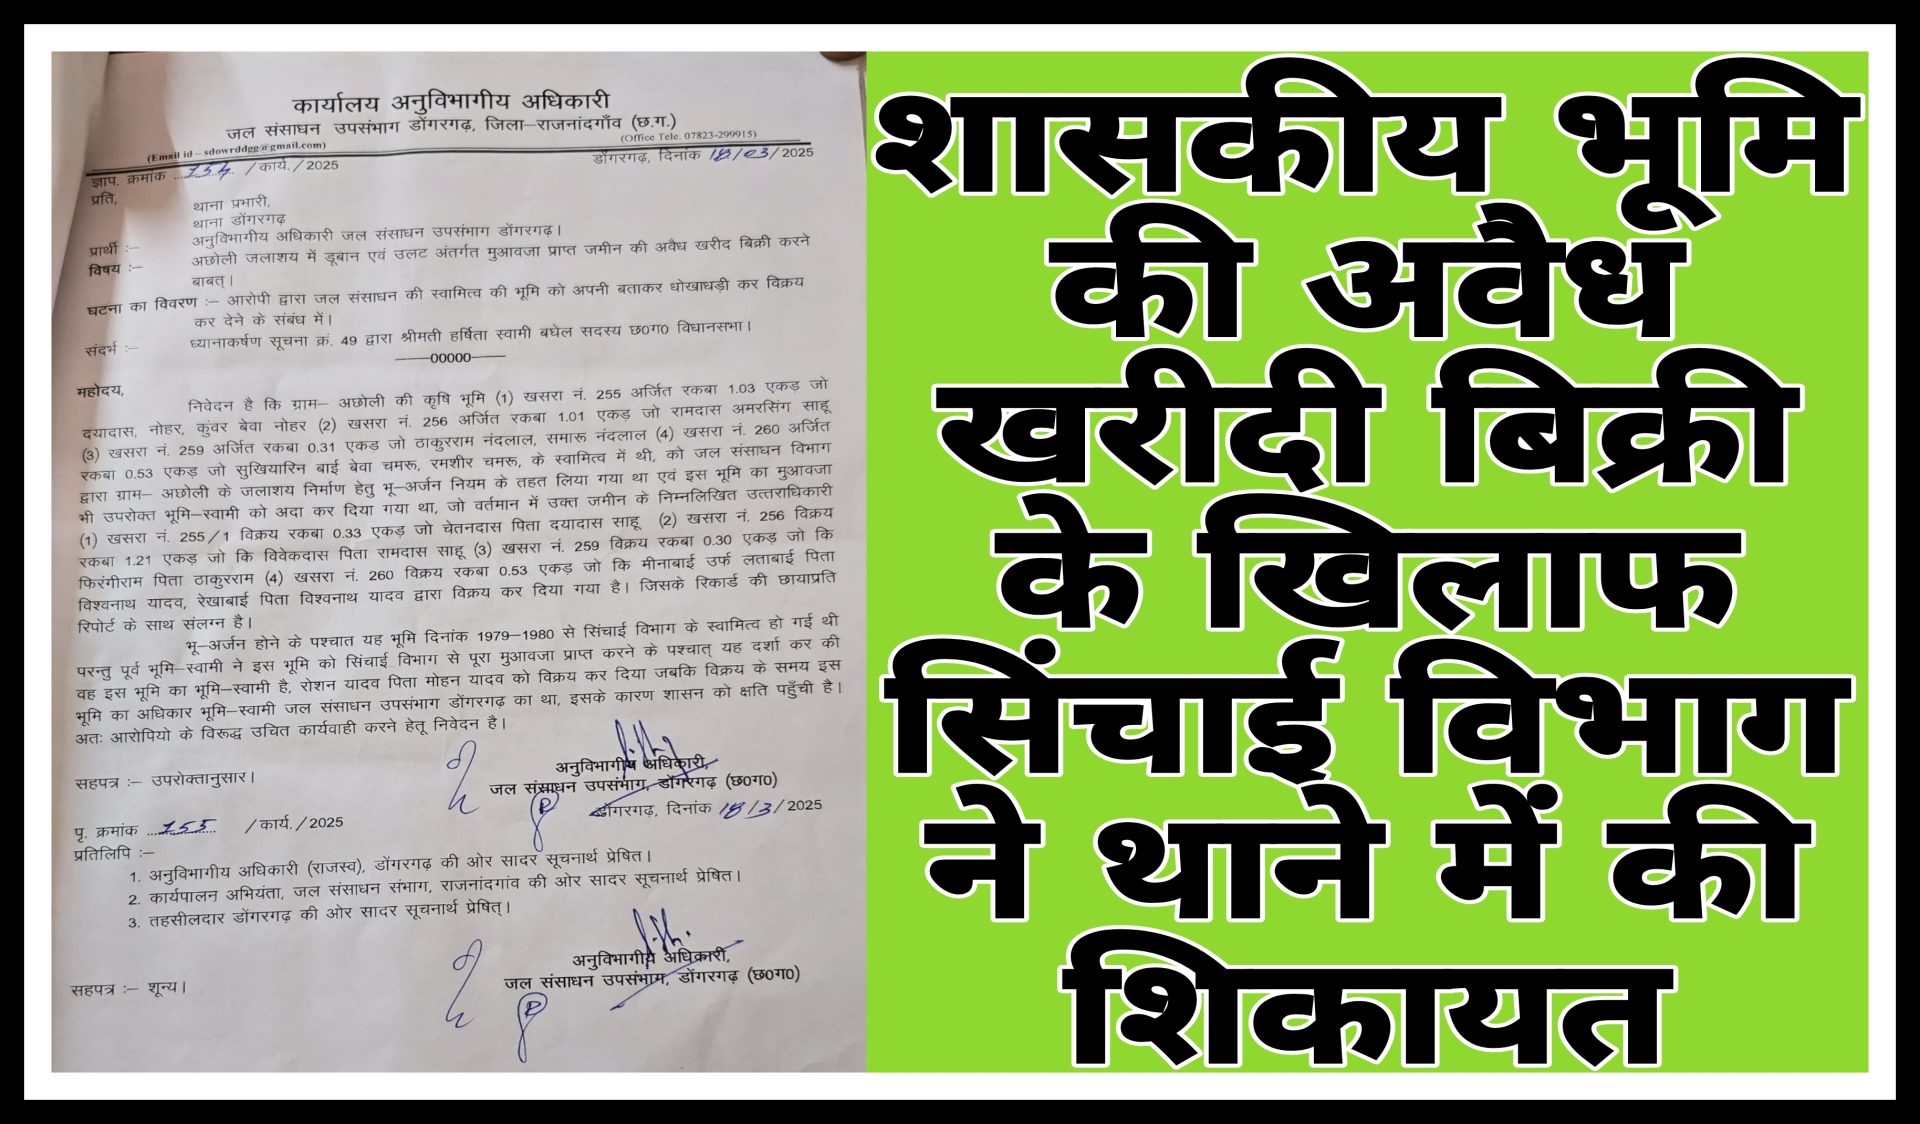 कार्यालय अनुविभागीय अधिकारी
जल संसाधन उपसंभाग डोंगरगढ़, जिला–राजनांदगाँव (छ.ग.)
(Email id – sdowrddgg@gmail.com)
(Office Tele. 07823-299915)
ज्ञाप. क्रमांक ...154... / कार्य. / 2025
डोंगरगढ़, दिनांक 18/03/2025
प्रति,
थाना प्रभारी,
थाना डोंगरगढ़
प्रार्थी :– अनुविभागीय अधिकारी जल संसाधन उपसंभाग डोंगरगढ़।
विषय :– अछोली जलाशय में डूबान एवं उलट अंतर्गत मुआवजा प्राप्त जमीन की अवैध खरीद बिक्री करने
बाबत्।
घटना का विवरण :– आरोपी द्वारा जल संसाधन की स्वामित्व की भूमि को अपनी बताकर धोखाधड़ी कर विक्रय
कर देने के संबंध में।
संदर्भ :– ध्यानाकर्षण सूचना क्रं. 49 द्वारा श्रीमती हर्षिता स्वामी बघेल सदस्य छ0ग0 विधानसभा।
——00000——
महोदय,
निवेदन है कि ग्राम– अछोली की कृषि भूमि (1) खसरा नं. 255 अर्जित रकबा 1.03 एकड़ जो
दयादास, नोहर, कुंवर बेवा नोहर (2) खसरा नं. 256 अर्जित रकबा 1.01 एकड़ जो रामदास अमरसिंग साहू
(3) खसरा नं. 259 अर्जित रकबा 0.31 एकड़ जो ठाकुरराम नंदलाल, समारू नंदलाल (4) खसरा नं. 260 अर्जित
रकबा 0.53 एकड़ जो सुखियारिन बाई बेवा चमरू, रमशीर चमरू, के स्वामित्व में थी, को जल संसाधन विभाग
द्वारा ग्राम– अछोली के जलाशय निर्माण हेतु भू–अर्जन नियम के तहत लिया गया था एवं इस भूमि का मुआवजा
भी उपरोक्त भूमि–स्वामी को अदा कर दिया गया था, जो वर्तमान में उक्त जमीन के निम्नलिखित उत्तराधिकारी
(1) खसरा नं. 255/1 विक्रय रकबा 0.33 एकड़ जो चेतनदास पिता दयादास साहू (2) खसरा नं. 256 विक्रय
रकबा 1.21 एकड़ जो कि विवेकदास पिता रामदास साहू (3) खसरा नं. 259 विक्रय रकबा 0.30 एकड़ जो कि
फिरंगीराम पिता ठाकुरराम (4) खसरा नं. 260 विक्रय रकबा 0.53 एकड़ जो कि मीनाबाई उर्फ लताबाई पिता
विश्वनाथ यादव, रेखाबाई पिता विश्वनाथ यादव द्वारा विक्रय कर दिया गया है। जिसके रिकार्ड की छायाप्रति
रिपोर्ट के साथ संलग्न है।
भू–अर्जन होने के पश्चात यह भूमि दिनांक 1979–1980 से सिंचाई विभाग के स्वामित्व हो गई थी
परन्तु पूर्व भूमि–स्वामी ने इस भूमि को सिंचाई विभाग से पूरा मुआवजा प्राप्त करने के पश्चात् यह दर्शा कर की
वह इस भूमि का भूमि–स्वामी है, रोशन यादव पिता मोहन यादव को विक्रय कर दिया जबकि विक्रय के समय इस
भूमि का अधिकार भूमि–स्वामी जल संसाधन उपसंभाग डोंगरगढ़ का था, इसके कारण शासन को क्षति पहुँची है।
अतः आरोपियो के विरूद्ध उचित कार्यवाही करने हेतू निवेदन है।
सहपत्र :– उपरोक्तानुसार।
अनुविभागीय अधिकारी,
जल संसाधन उपसंभाग, डोंगरगढ़ (छ0ग0)
पृ. क्रमांक ...155... / कार्य. / 2025
डोंगरगढ़, दिनांक 18/3/2025
प्रतिलिपि :–
1. अनुविभागीय अधिकारी (राजस्व), डोंगरगढ़ की ओर सादर सूचनार्थ प्रेषित।
2. कार्यपालन अभियंता, जल संसाधन संभाग, राजनांदगांव की ओर सादर सूचनार्थ प्रेषित।
3. तहसीलदार डोंगरगढ़ की ओर सादर सूचनार्थ प्रेषित्।
अनुविभागीय अधिकारी,
जल संसाधन उपसंभाग, डोंगरगढ़ (छ0ग0)
सहपत्र :– शून्य।
शासकीय भूमि
की अवैध
खरीदी बिक्री
के खिलाफ
सिंचाई विभाग
ने थाने में की
शिकायत